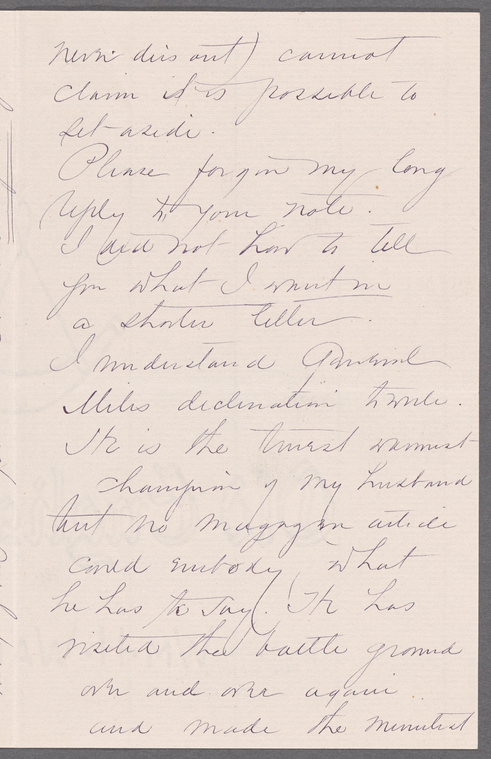 never dis out) cannot
claim it is possible to
set aside.
Please forgive my long
reply to your note.
I did not how to tell
you what I must in
a shorter letter.
I understand General
Miles declination to write.
He is the truest warmest
champion of my husband
but no magazine article
could embody what
he has to say. He has
visited the battle ground
over and over again
and made the minutest